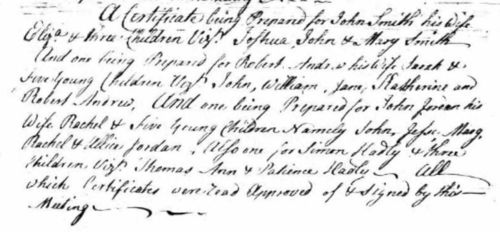 A Certificate being Prepared for John Smith his Wife
Eliza. & three Children Vizt. Joshua, John & Mary Smith
And one being Prepared for Robert Andrew his Wife Sarah &
Five Young Children Vizt. John, William, Jane, Katherine and
Robert Andrew, And one being Prepared for John Jordan his
Wife Rachel & Five Young Children Namely John, Jesse Mary,
Rachel & Allice Jordan, Also one for Simon Hadly & three
Children Vizt. Thomas Ann & Patience Hadly All
which Certificates were read Approved of & Signed by this
Meeting